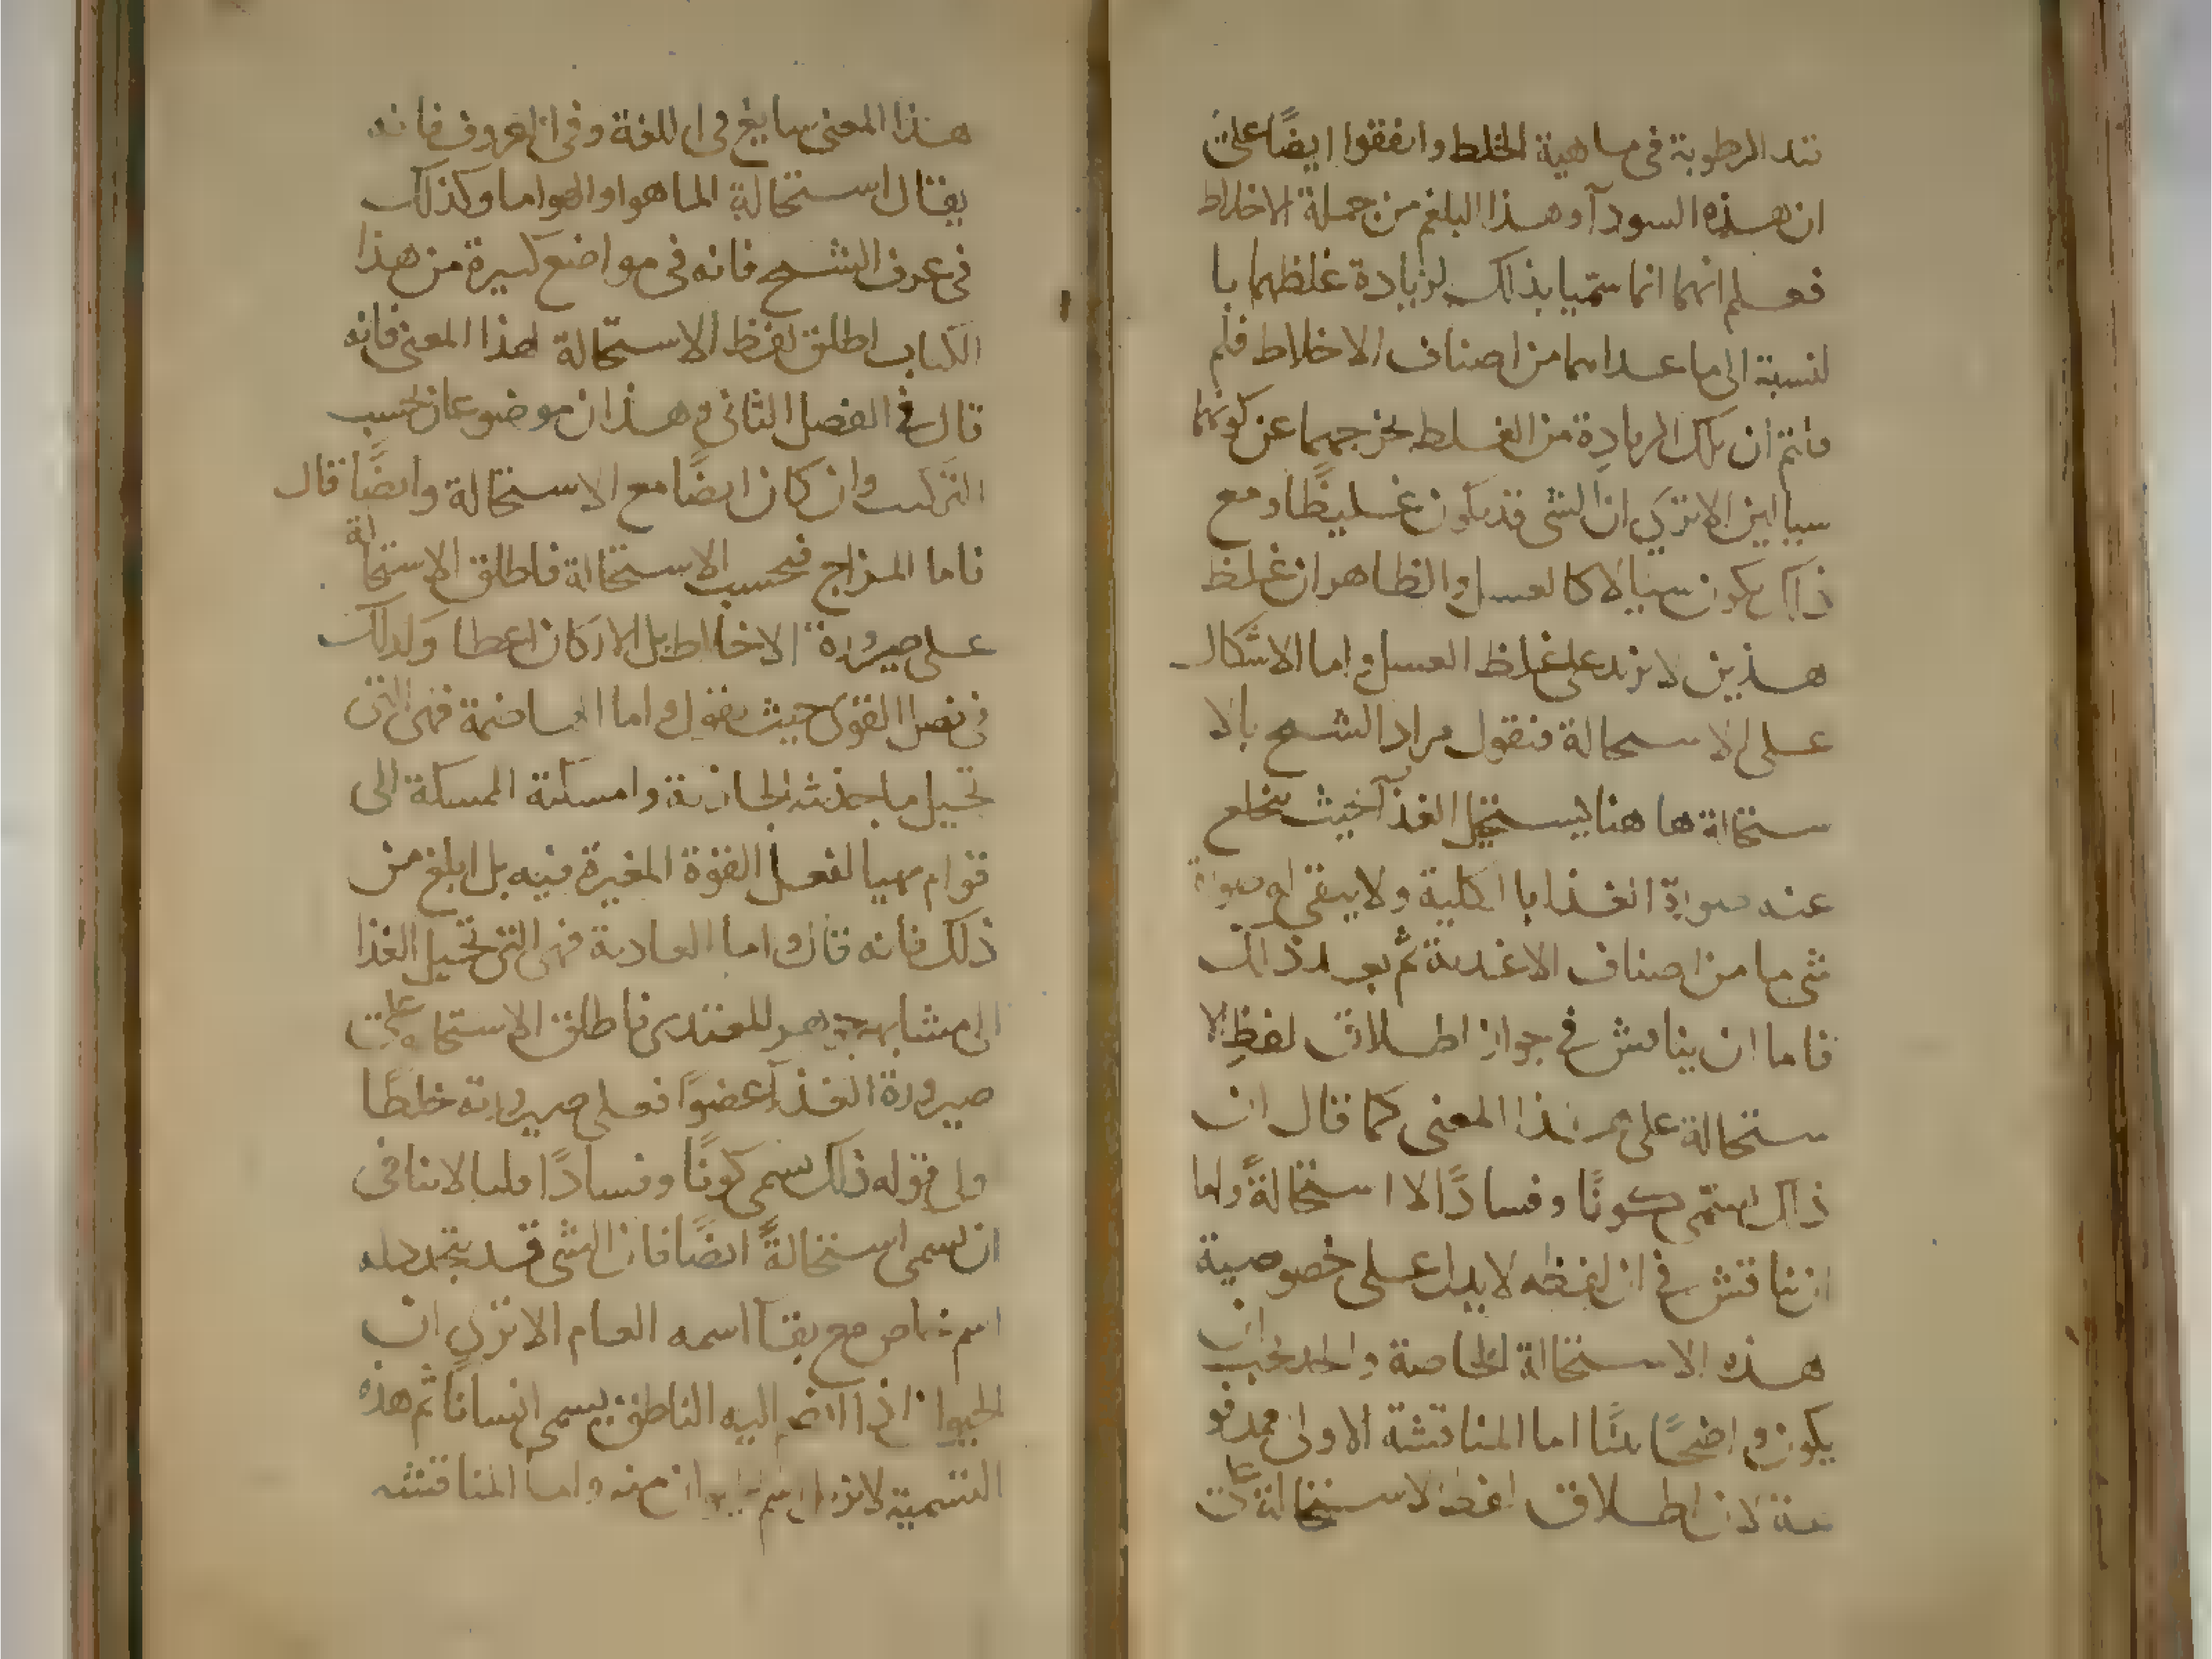 تند الرطوبة في ماهية الخلط واتفقوا ايضًا على
ان هذه السودآ وهذا البلغم من جملة الاخلاط
فعلم انهما انما سمّيا بذلك لزيادة غلظهما با
لنسبة الى ما عداهما من اصناف الاخلاط فلم
ان تلك الزيادة من الغلط تخرجهما عن كونهما
سيالين الا ترى ان الشى قد يكون غليظًا ومع
ذلك يكون سيالا كالعسل والظاهر ان غلظ
هذين لا يزيد على غلظ العسل واما الاشكال
على الاستحالة فنقول مراد الشيخ بالا
ستحالة ها هنا يستحيل الغذآ بحيث تنخلع
عنه صورة الغذا بالكلية ولا يبقى له صورة
شى ما من اصناف الاغذية ثم بعد ذلك
فاما ان يناقش في جواز اطلاق لفظ الا
ستحالة على هذا المعنى كما قال ان
ذلك يسمّى كونًا وفسادًا لا استحالةً واما
ان يناقش في ان لفظه لا يدل على خصوصية
هذه الاستحالة الخاصة والحد يجب ان
يكون واضحًا بينًا اما المناقشة الاولى فمدفو
عة لان اطلاق لفظ الاستحالة على
هذا المعنى سايغ في اللغة وفي العرف فانه
يقال استحالة الما هوا والهوا ما وكذلك
في عرف الشيخ فانه في مواضع كثيرة من هذا
الكتاب اطلق لفظ الاستحالة لهذا المعنى فانه
قال في الفصل الثاني وهذان موضوعان بحسب
التركيب وان كان ايضًا مع الاستحالة وايضًا قال
فاما المزاج فبحسب الاستحالة فاطلق الاستحالة
على صيرورة الاخلاط بل الاركان اعضا وكذلك
في فصل القوى حيث يقول واما الهاضمة فهى التى
تحيل ما جذبته الجاذبة وامسكته الممسكة الى
قوام مهيا لفعل القوة المغيرة فيه بل ابلغ من
ذلك فانه قال واما الغاذية فهى التى تحيل الغذا
الى مشابهة جوهر المغتذى فاطلق الاستحالة على
صيرورة الغذآ عضوًا فعلى صيرورته خلطًا
ولى قوله ذلك يسمى كونًا وفسادًا قلنا لا ينافى
ان يسمى استحالةً ايضًا فان الشى قد يتجدد له
اسم خاص مع بقآ اسمه العام الا ترى ان
الحيوان اذا انضم اليه الناطق يسمى انسانًا ثم هذه
التسمية لا تزيل اسم الحيوان عنه واما المناقشه